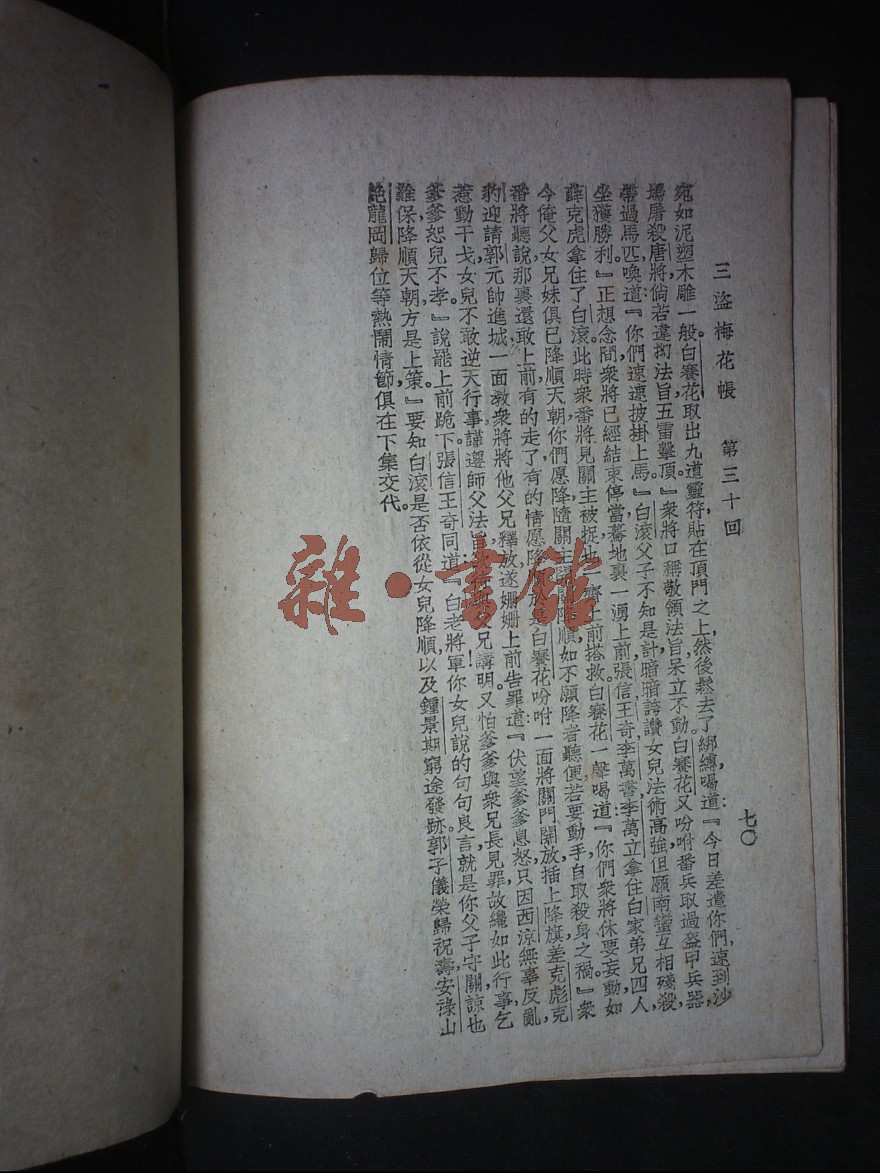 三盜梅花帳　第三十回　七〇
宛如泥塑木雕一般。白賽花取出九道靈符貼在頂門之上，然後鬆去了綁縛，喝道：『今日差遣你們，速到沙
場屠殺唐將，倘若違拗法旨，五雷擊頂。』衆將口稱敬領法旨，呆立不動。白賽花又吩咐番兵取過盔甲兵器，
帶過馬匹，喚道：『你們速速披掛上馬。』白滾父子不知是計，暗暗誇讚女兒法術高強，但願南蠻互相殘殺，
坐獲勝利』正想念間，衆將已經結束停當，驀地裏一湧上前，張信王奇李萬書李萬立拿住白家弟兄四人，
薛克虎拿住了白滾。此時衆番將見關主被捉，也一齊上前搭救。白賽花一聲喝道：『你們衆將休要妄動，如
今俺父女兄妹俱已降順天朝，你們愿降隨關主開關降順，如不願降者聽便，若要動手，自取殺身之禍。』衆
番將聽說，那裏還敢上前，有的走了，有的情愿降順，於是白賽花吩咐一面將關門開放，插上降旗，差克彪克
豹迎請郭元帥進城，一面教衆將將他父兄釋放，遂姍姍上前告罪道：『伏望爹爹息怒，只因西涼無辜反亂，
惹動干戈，女兒不敢逆天行事，謹遵師父法旨，欲待與父兄講明，又怕爹爹與衆兄長見罪，故纔如此行事，乞
爹爹恕兒不孝』說罷上前跪下。張信王奇同道『白老將軍，你女兒說的句句良言，就是你父子守關，諒也
難保，降順天朝，方是上策。』要知白滾是否依從女兒降順，以及鍾景期窮途發跡，郭子儀榮歸祝壽，安祿山
絶龍岡歸位等熱鬧情節，俱在下集交代。
雜·書館